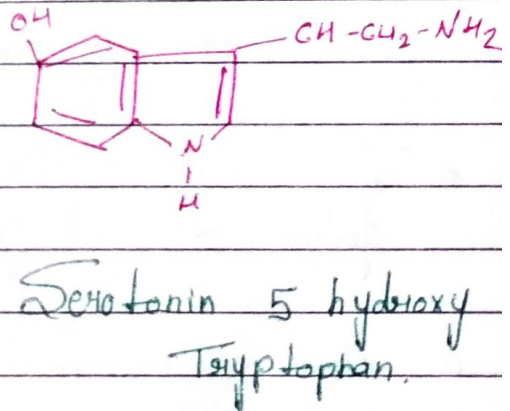 OH
CH-CH2-NH2
N
H
Serotonin 5 hydroxy
Tryptophan.